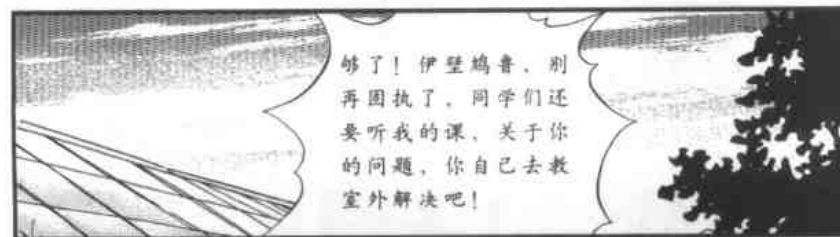 够了！伊壁鸠鲁、别
再固执了，同学们还
要听我的课、关于你
的问题，你自己去教
室外解决吧！